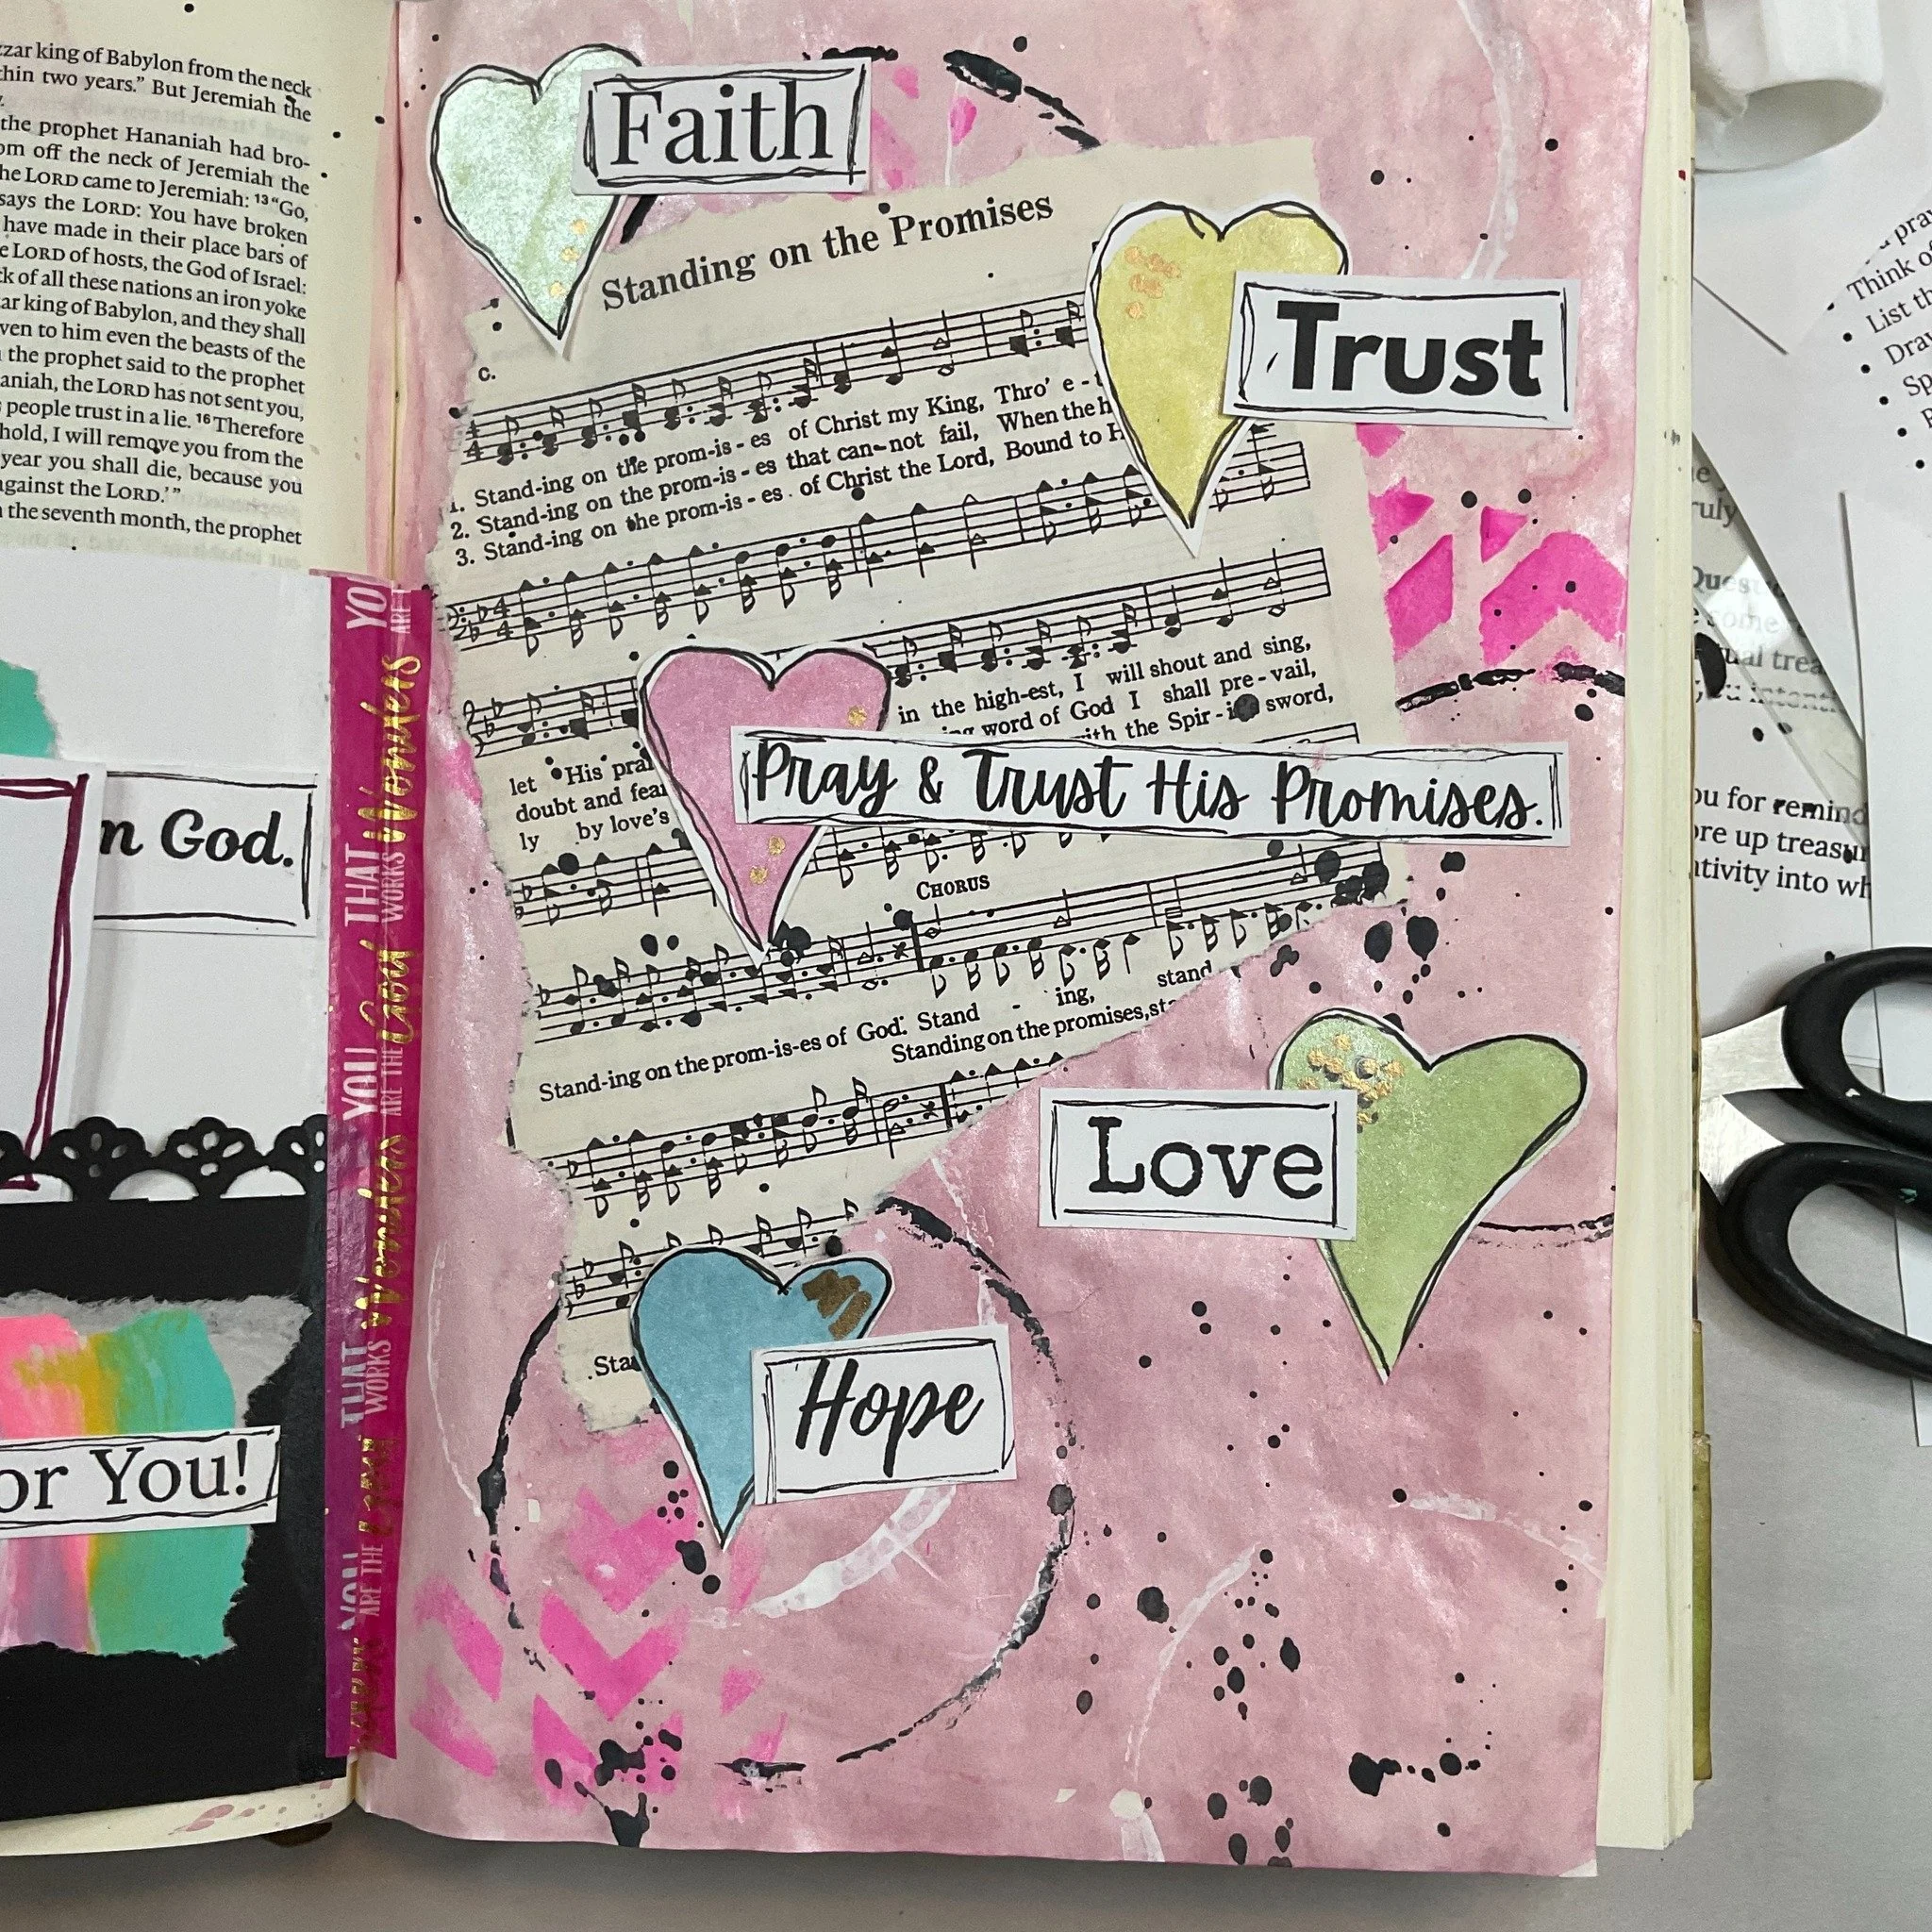 zar king of Babylon from the neck
thin two years.” But Jeremiah the
the prophet Hananiah had bro-
om off the neck of Jeremiah the
he LORD came to Jeremiah: 13 “Go,
says the LORD: You have broken
have made in their place bars of
e LORD of hosts, the God of Israel:
ck of all these nations an iron yoke
ar king of Babylon, and they shall
ven to him even the beasts of the
the prophet said to the prophet
aniah, the LORD has not sent you,
people trust in a lie. 16 Therefore
hold, I will remove you from the
year you shall die, because you
against the LORD.’”
the seventh month, the prophet
n God.
or You!
YOU ARE THE God THAT WORKS Wonders
YOU ARE THE God THAT WORKS Wonders
Faith
Standing on the Promises
Trust
C.
1. Stand-ing on the prom-is-es of Christ my King, Thro’ e-
2. Stand-ing on the prom-is-es that can-not fail, When the h
3. Stand-ing on the prom-is-es of Christ the Lord, Bound to H
in the high-est, I will shout and sing,
word of God I shall pre-vail,
with the Spir-it's sword,
let His prai
doubt and fear
ly by love’s
Pray & Trust His Promises.
CHORUS
Stand-ing on the prom-is-es of God. Stand - ing, stand
Standing on the promises, st
Love
Sta
Hope
pra
Think o
List th
Dra
Sp
ruly
Quest
some
ual trea
ou for remind
ore up treasur
ativity into wh